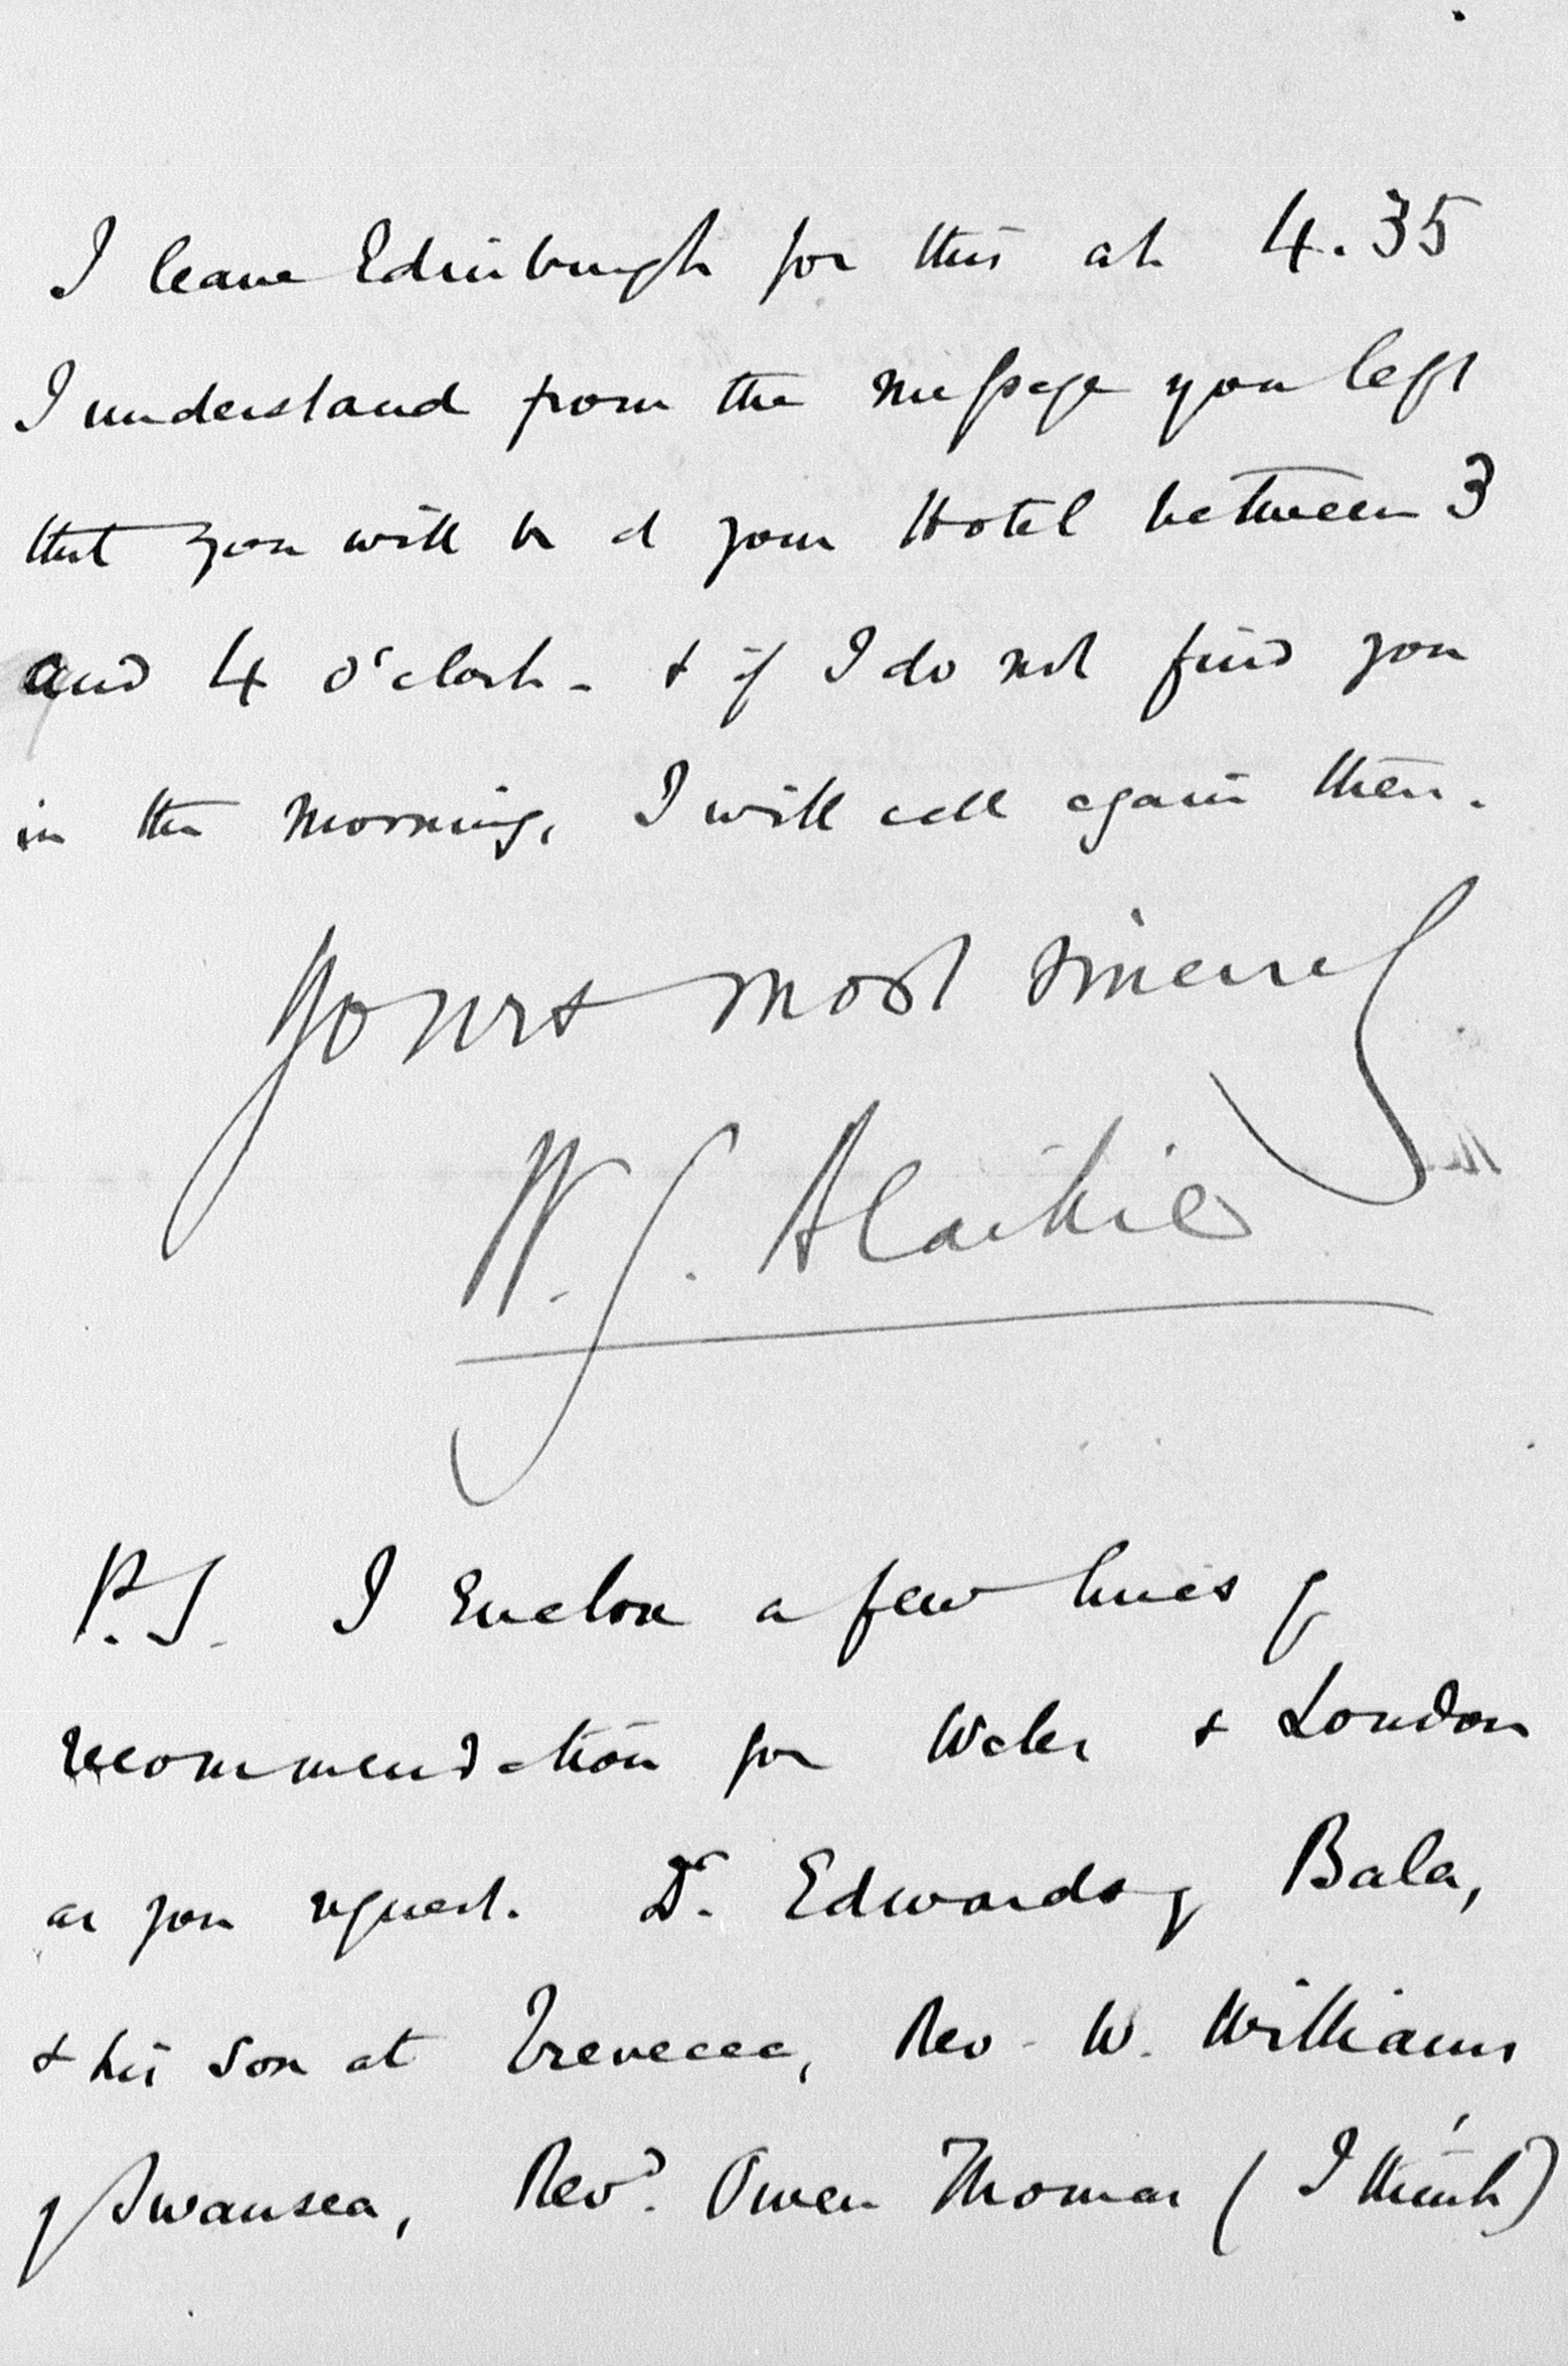 I leave Edinburgh for this at 4.35
I understand from the message you left
that you will be at your Hotel between 3
and 4 o'clock - & if I do not find you
in the morning, I will call again then.
Yours most sincerely
W. G. Blaikie
P.S. I enclose a few lines of
recommendation for Wales & London
as you request. Dr. Edwards of Bala,
& his son at Trevecca, Rev. W. Williams
of Swansea, Revd. Owen Thomas (I think)